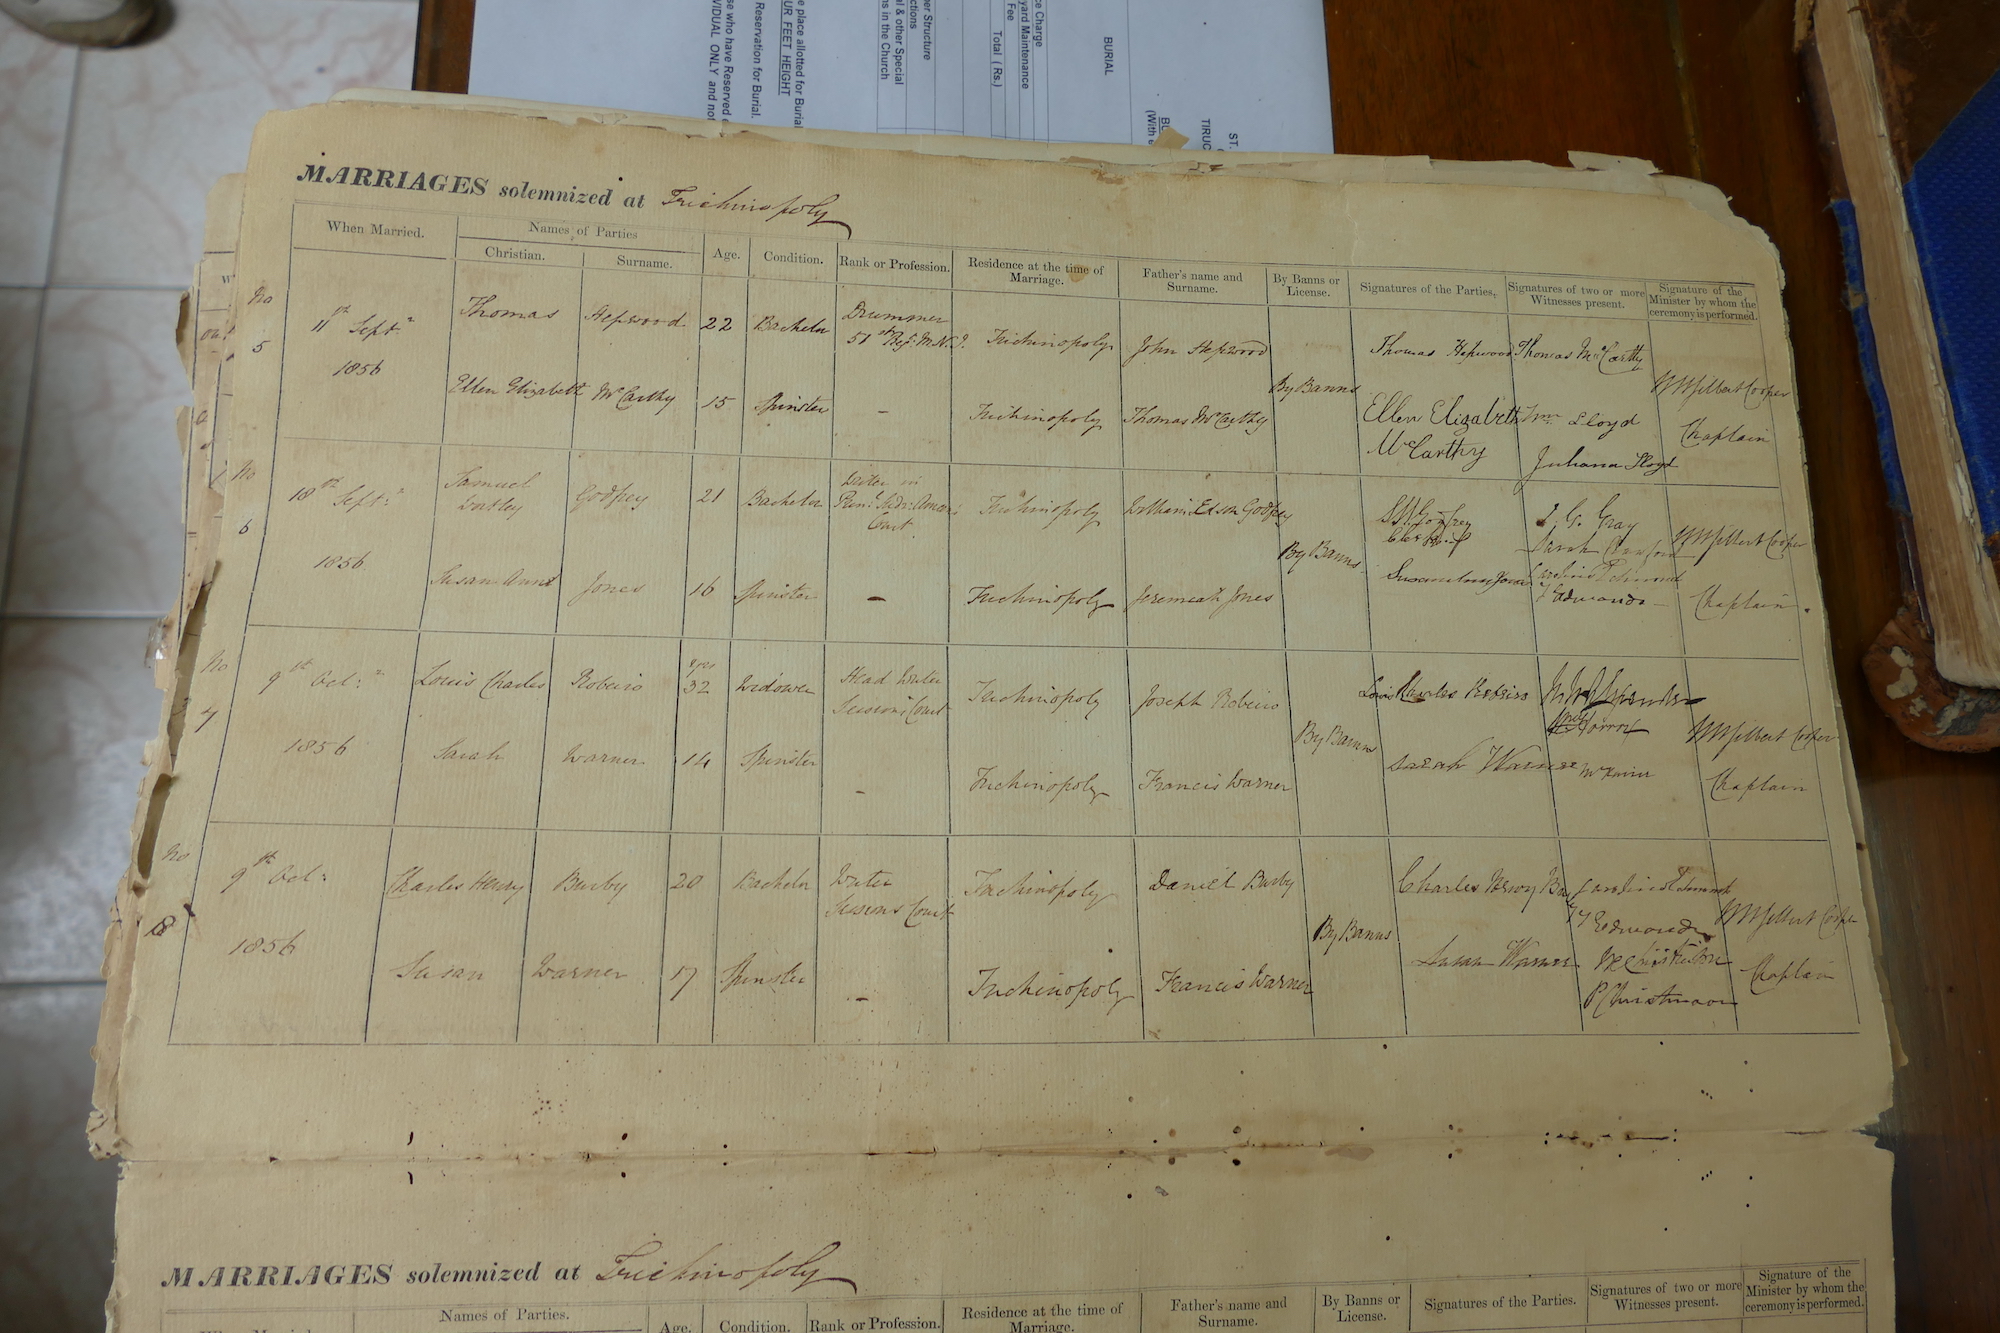 ce Charge
yard Maintenance
Fee
Total ( Rs.)
BURIAL
per Structure
ctions
al & other Special
ns in the Church
e place allotted for Burial
UR FEET HEIGHT
Reservation for Burial.
se who have Reserved
VIDUAL ONLY and not
(With
TIRUC
ST.
MARRIAGES solemnized at Trichinopoly
When Married.
Names of Parties
Christian.
Surname.
Age.
Condition.
Rank or Profession.
Residence at the time of Marriage.
Father's name and Surname.
By Banns or License.
Signatures of the Parties.
Signatures of two or more Witnesses present.
Signature of the Minister by whom the ceremony is performed.
No 5
11th Sept. 1856
Thomas Hepwood 22 Bachelor Drummer 51st Regt. M.N.I. Trichinopoly John Hepwood
Ellen Elizabeth McCarthy 15 Spinster – Trichinopoly Thomas McCarthy
By Banns
Thomas Hepwood
Ellen Elizabeth McCarthy
Thomas McCarthy
Wm. Lloyd
Juliana Lloyd
Gilbert Cooper
Chaplain
No 6
18th Sept. 1856
Samuel Godfrey 21 Bachelor Writer in Court Trichinopoly William Edson Godfrey
Susan Anne Jones 16 Spinster – Trichinopoly Jeremiah Jones
By Banns
Godfrey
Gray
Sarah
Edmonds
Gilbert Cooper
Chaplain
No 7
9th Oct. 1856
Louis Charles Robeiro yrs 32 Widower Head Writer Sessions Court Trichinopoly Joseph Robeiro
Sarah Warner 14 Spinster – Trichinopoly Francis Warner
By Banns
Louis Charles
Sarah Warner
Gilbert Cooper
Chaplain
No 8
9th Oct. 1856
Charles Henry Burby 20 Bachelor Writer Sessions Court Trichinopoly Daniel Burby
Susan Warner 17 Spinster – Trichinopoly Francis Warner
By Banns
Charles Henry
Susan Warner
Edmonds
Gilbert Cooper
Chaplain
MARRIAGES solemnized at Trichinopoly
Names of Parties.
Age.
Condition.
Rank or Profession.
Residence at the time of Marriage.
Father's name and Surname.
By Banns or License.
Signatures of the Parties.
Signatures of two or more Witnesses present.
Signature of the Minister by whom the ceremony is performed.